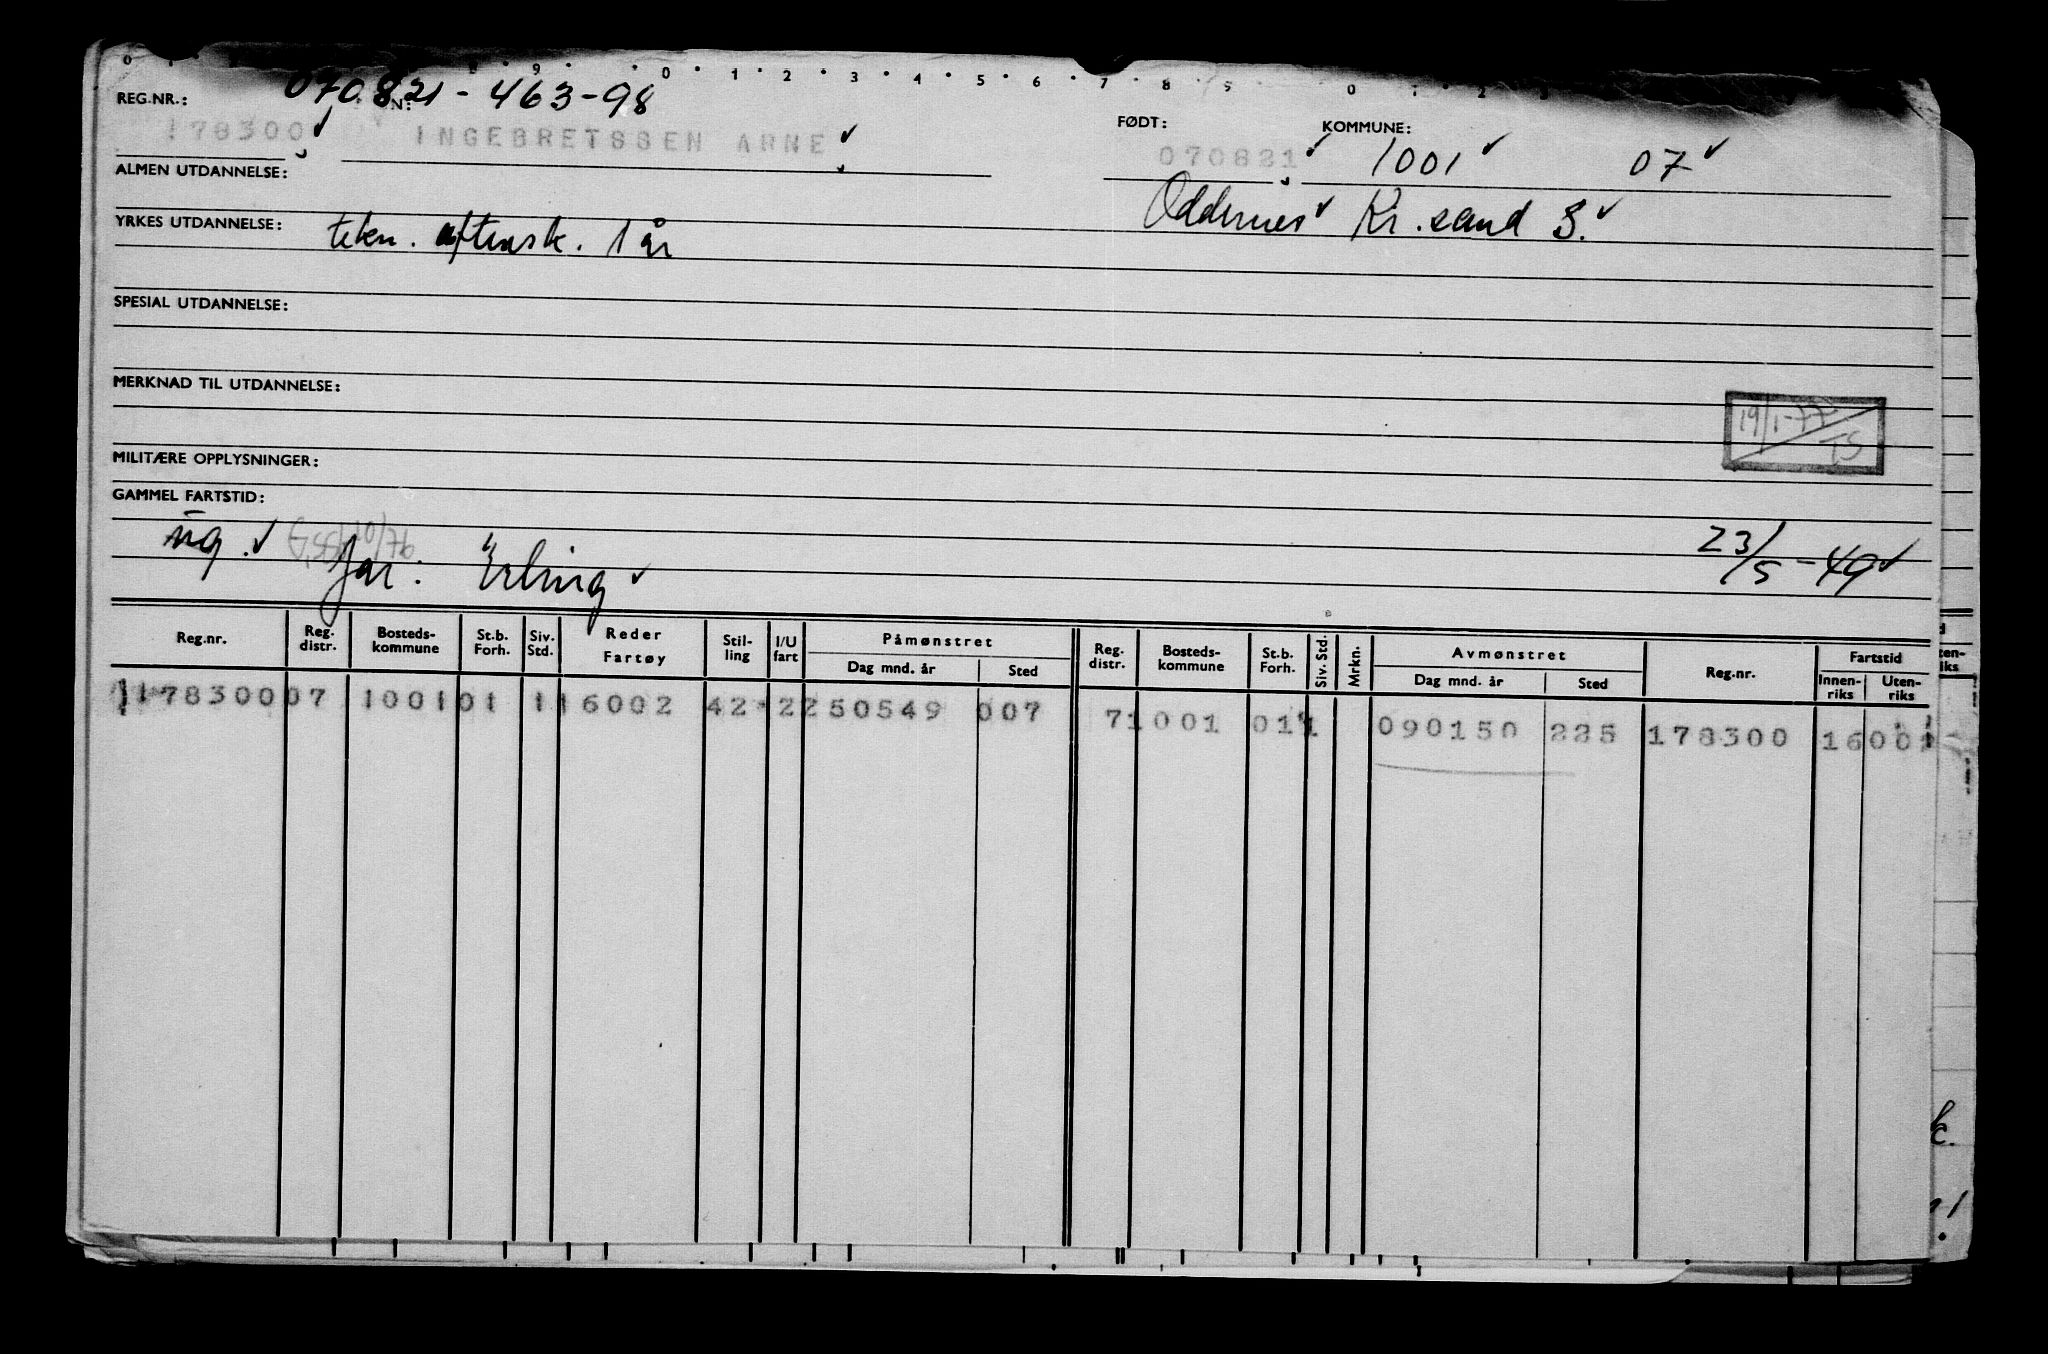 0 9 0 1 2 3 4 5 6 7 8 9 0 1 2
070821-463-98
REG.NR.: N: FØDT: KOMMUNE:
178300 INGEBRETSSEN ARNE 070821 1001 07
ALMEN UTDANNELSE:
Oddernes Kr.sand S.
YRKES UTDANNELSE: tekn. aftensk. 1 år
SPESIAL UTDANNELSE:
MERKNAD TIL UTDANNELSE:
19/1-77
TS
MILITÆRE OPPLYSNINGER:
GAMMEL FARTSTID:
ug. 23/5-49
far: Erling
Reg.nr. Reg. distr. Bosteds-kommune St.b. Forh. Siv. Std. Reder Fartøy Stil-ling I/U fart Påmønstret Dag mnd. år Sted Reg. distr. Bosteds-kommune St.b. Forh. Siv. Std. Mrkn. Avmønstret Dag mnd. år Sted Reg.nr. Fartstid Innen-riks Uten-riks
17830007 100101 1 16002 42 22 50549 007
71001 011 090150 225 178300 1600